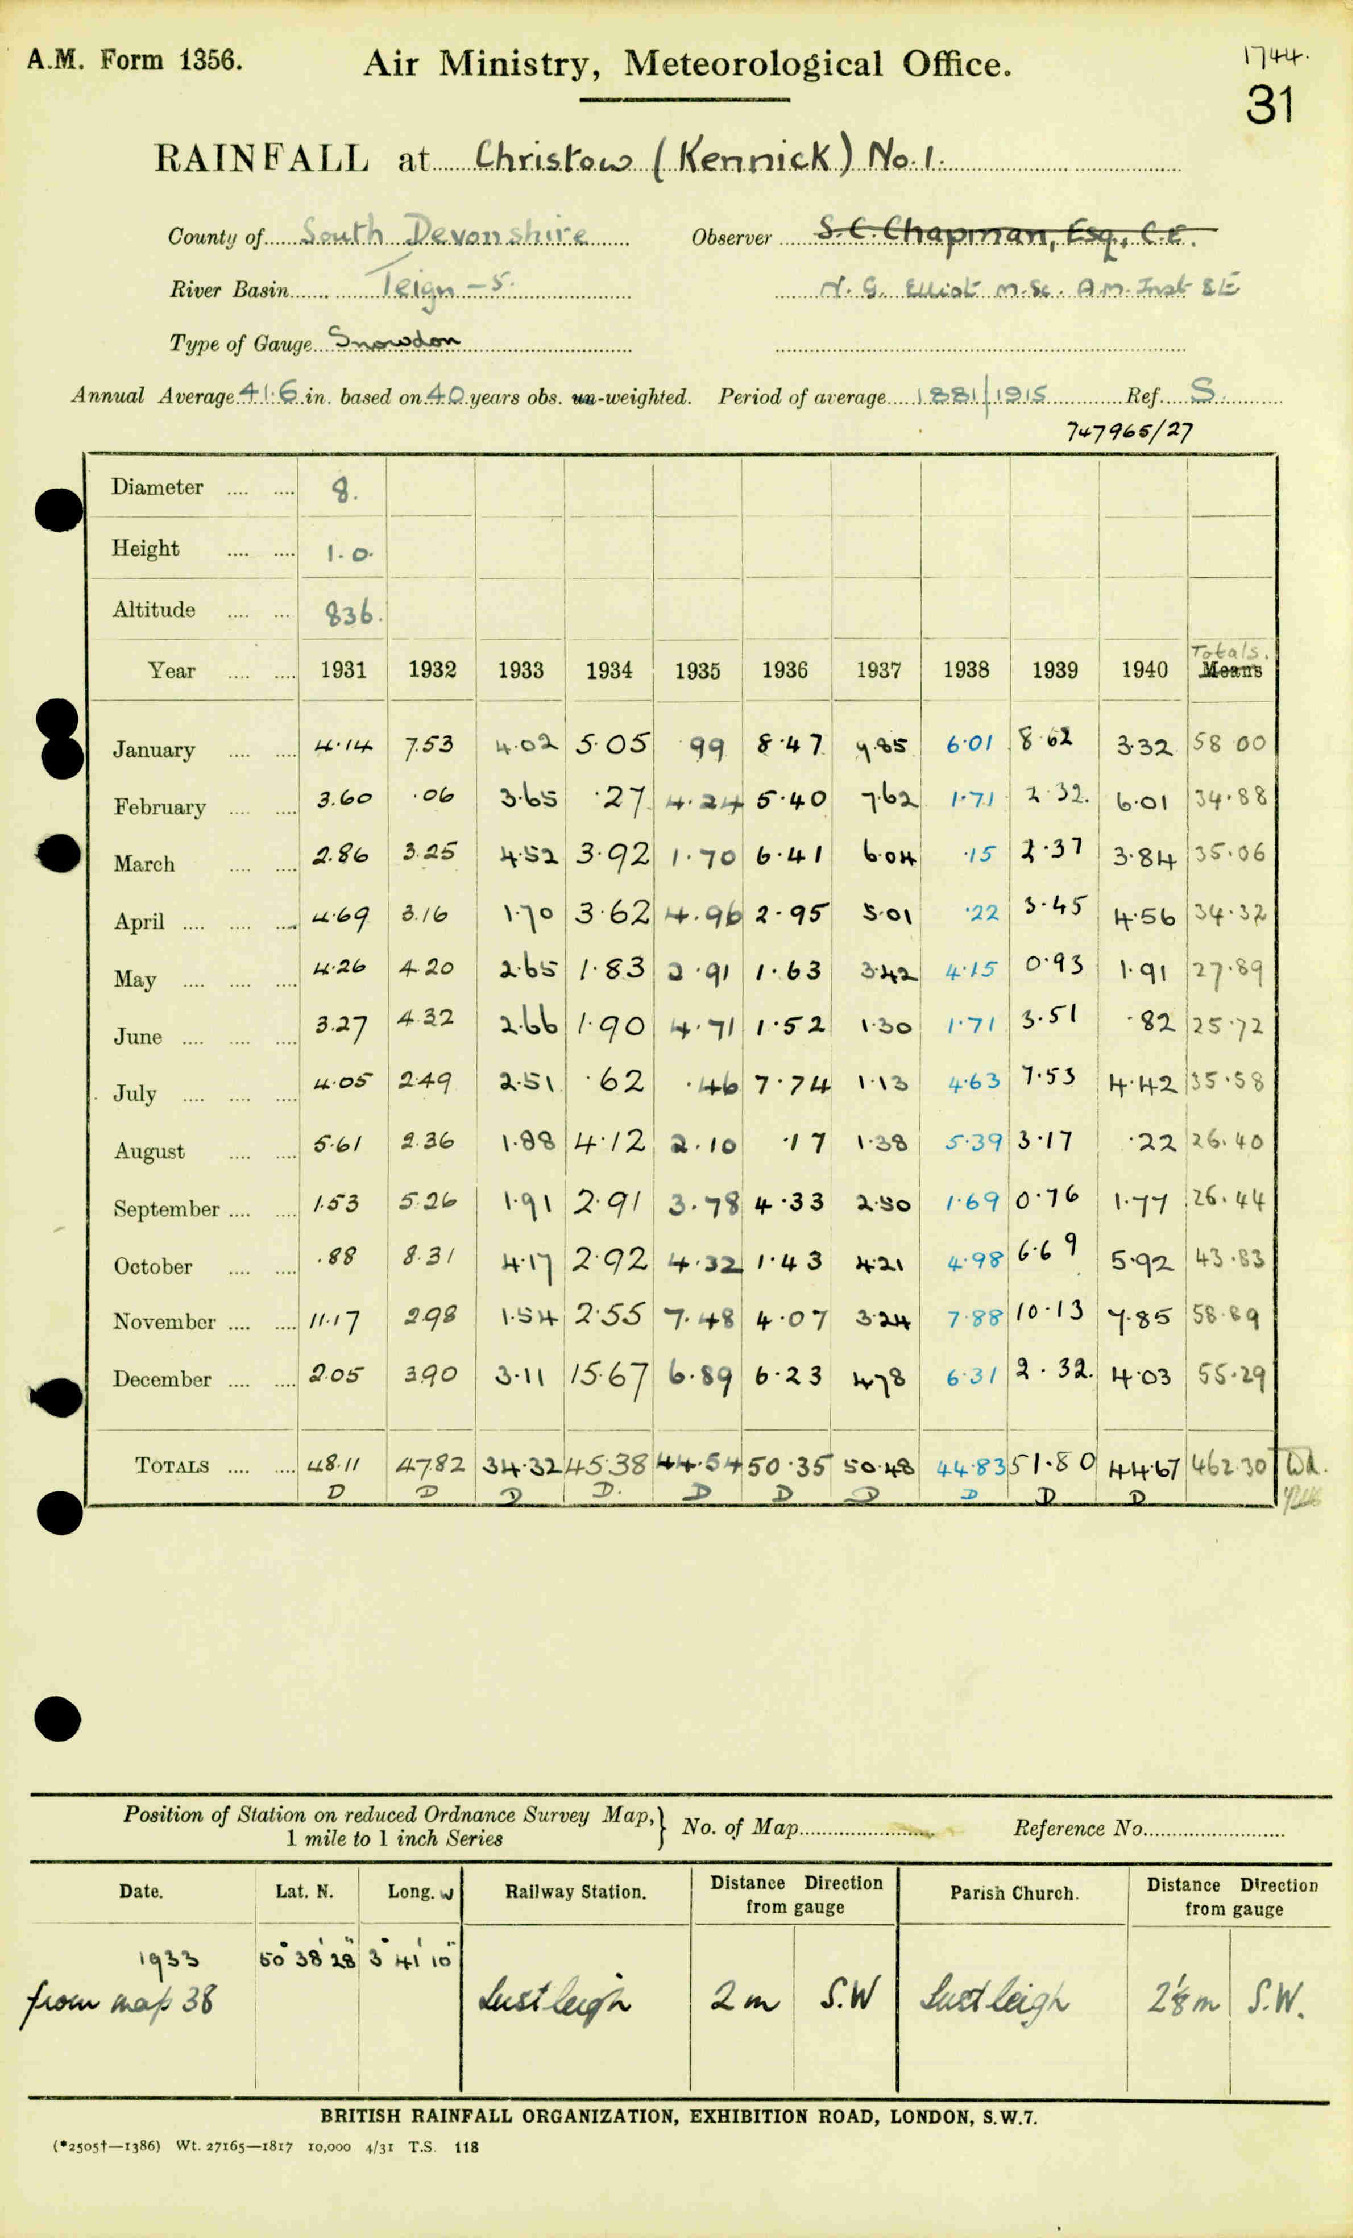 A.M. Form 1356.
Air Ministry, Meteorological Office.
1744.
31
RAINFALL at Christow (Kennick) No.1.
County of South Devonshire Observer S.C. Chapman, Esq., C.E.
River Basin Teign - 5. N. G. Elliot M.Sc. A.M. Inst C E
Type of Gauge Snowdon
Annual Average 41.6 in. based on 40 years obs. un-weighted. Period of average 1881/1915 Ref. S.
747965/27
Diameter .... .... 8.
Height .... .... 1.0.
Altitude .... .... 836.
Totals.
Year .... .... 1931 1932 1933 1934 1935 1936 1937 1938 1939 1940 Means
January .... .... 4.14 7.53 4.02 5.05 .99 8.47 9.85 6.01 8.62 3.32 58.00
February .... .... 3.60 .06 3.65 .27 4.24 5.40 7.62 1.71 2.32. 6.01 34.88
March .... .... 2.86 3.25 4.52 3.92 1.70 6.41 6.04 .15 2.37 3.84 35.06
April .... .... .... 4.69 3.16 1.70 3.62 4.96 2.95 5.01 .22 3.45 4.56 34.32
May .... .... .... 4.26 4.20 2.65 1.83 2.91 1.63 3.42 4.15 0.93 1.91 27.89
June .... .... .... 3.27 4.32 2.66 1.90 4.71 1.52 1.30 1.71 3.51 .82 25.72
July .... .... .... 4.05 2.49 2.51 .62 .46 7.74 1.13 4.63 7.53 4.42 35.58
August .... .... 5.61 2.36 1.88 4.12 2.10 .17 1.38 5.39 3.17 .22 26.40
September .... .... 1.53 5.26 1.91 2.91 3.78 4.33 2.50 1.69 0.76 1.77 26.44
October .... .... .88 8.31 4.17 2.92 4.32 1.43 4.21 4.98 6.69 5.92 43.83
November .... .... 11.17 2.98 1.54 2.55 7.48 4.07 3.24 7.88 10.13 7.85 58.89
December .... .... 2.05 3.90 3.11 15.67 6.89 6.23 4.78 6.31 2.32. 4.03 55.29
TOTALS .... .... 48.11 47.82 34.32 45.38 44.54 50.35 50.48 44.83 51.80 44.67 462.30
D D D D. D D D D D D
Position of Station on reduced Ordnance Survey Map, 1 mile to 1 inch Series } No. of Map Reference No.
Date. Lat. N. Long. W Railway Station. Distance Direction from gauge Parish Church. Distance Direction from gauge
1933 50° 38' 28" 3° 41' 10"
from map 38 Lustleigh 2 m S.W Lustleigh 2⅛ m S.W.
BRITISH RAINFALL ORGANIZATION, EXHIBITION ROAD, LONDON, S.W.7.
(*2505†—1386) Wt. 27165—1817 10,000 4/31 T.S. 118